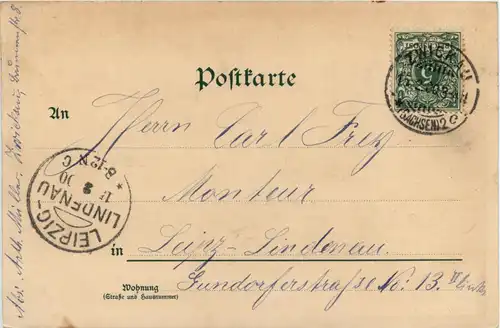 Postkarte
An Herrn Carl Frey
Monteur
in Leipz-Lindenau.
Wohnung
(Straße und Hausnummer)
Gundorferstrasse No: 13. III links
Abs. Arth. Müller, Zwickau,
LEIPZIG-
LINDENAU
8-12 N
ZWICKAU
(SACHSEN) 2